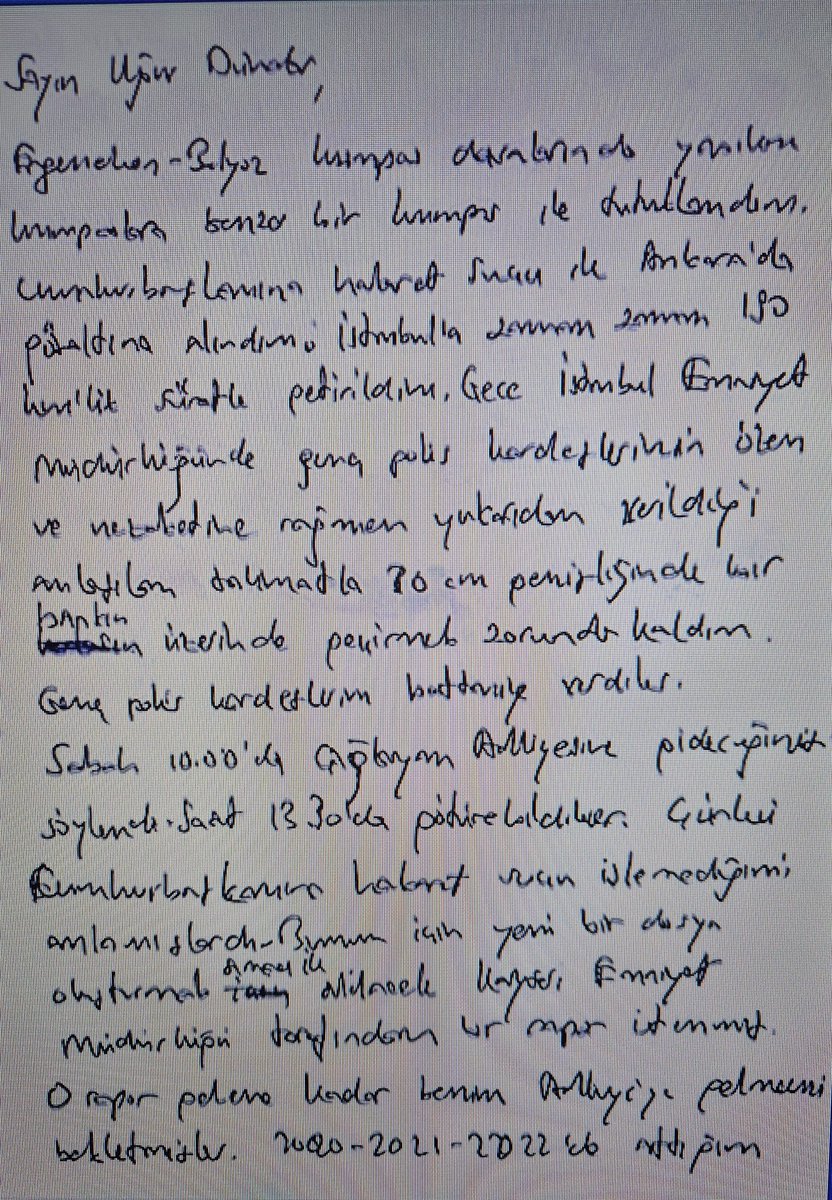 Sayın Uğur Dündar,
Ergenekon-Balyoz kumpas davalarında yapılan
kumpaslara benzer bir kumpas ile tutuklandım.
Cumhurbaşkanına hakaret suçu ile Ankara'da
gözaltına alındım. İstanbul'a zaman zaman 190
km'lik süratle getirildim. Gece İstanbul Emniyet
Müdürlüğünde genç polis kardeşlerimin özen
ve nezaketine rağmen yukarıdan verildiği
anlaşılan talimatla 70 cm genişliğinde bir
bankın üzerinde geçirmek zorunda kaldım.
Genç polis kardeşlerim battaniye verdiler.
Sabah 10.00'da Çağlayan Adliyesine gideceğimiz
söylendi. Saat 13 30'da götürebildiler. Çünkü
Cumhurbaşkanına hakaret suçu işlemediğimi
anlamışlardı. Bunun için yeni bir dosya
oluşturmak amacı ile alelacele Kayseri Emniyet
Müdürlüğü tarafından bir rapor istenmiş.
O rapor gelene kadar benim Adliyeye gelmemi
bekletmişler. 2020-2021-2022'de attığım